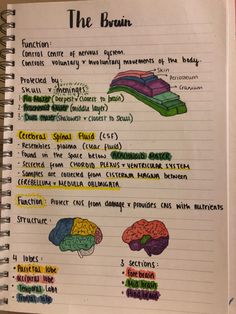 The Brain
Function:
Control centre of nervous system.
Controls voluntary + involuntary movements of the body.
Skin
Periosteum
Cranium
Protected by:
Skull + meninges
1. Pia Mater (Deepest + closest to brain)
2. Arachnoid Mater (middle layer)
3. Dura Mater (Shallowest + closest to Skull)
Cerebral Spinal Fluid (CSF)
- Resembles plasma (clear fluid)
- Found in the space below Arachnoid Mater
- Secreted from CHOROID PLEXUS + VENTRICULAR SYSTEM
- Samples are collected from CISTERNA MAGNA between
CEREBELLUM + MEDULLA OBLONGATA
Function: Protect CNS from damage + provides CNS with nutrients
Structure:
4 lobes:
Parietal lobe
Occipital lobe
Temporal lobe
Frontal lobe
3 sections:
Fore brain
Mid brain
Hind brain